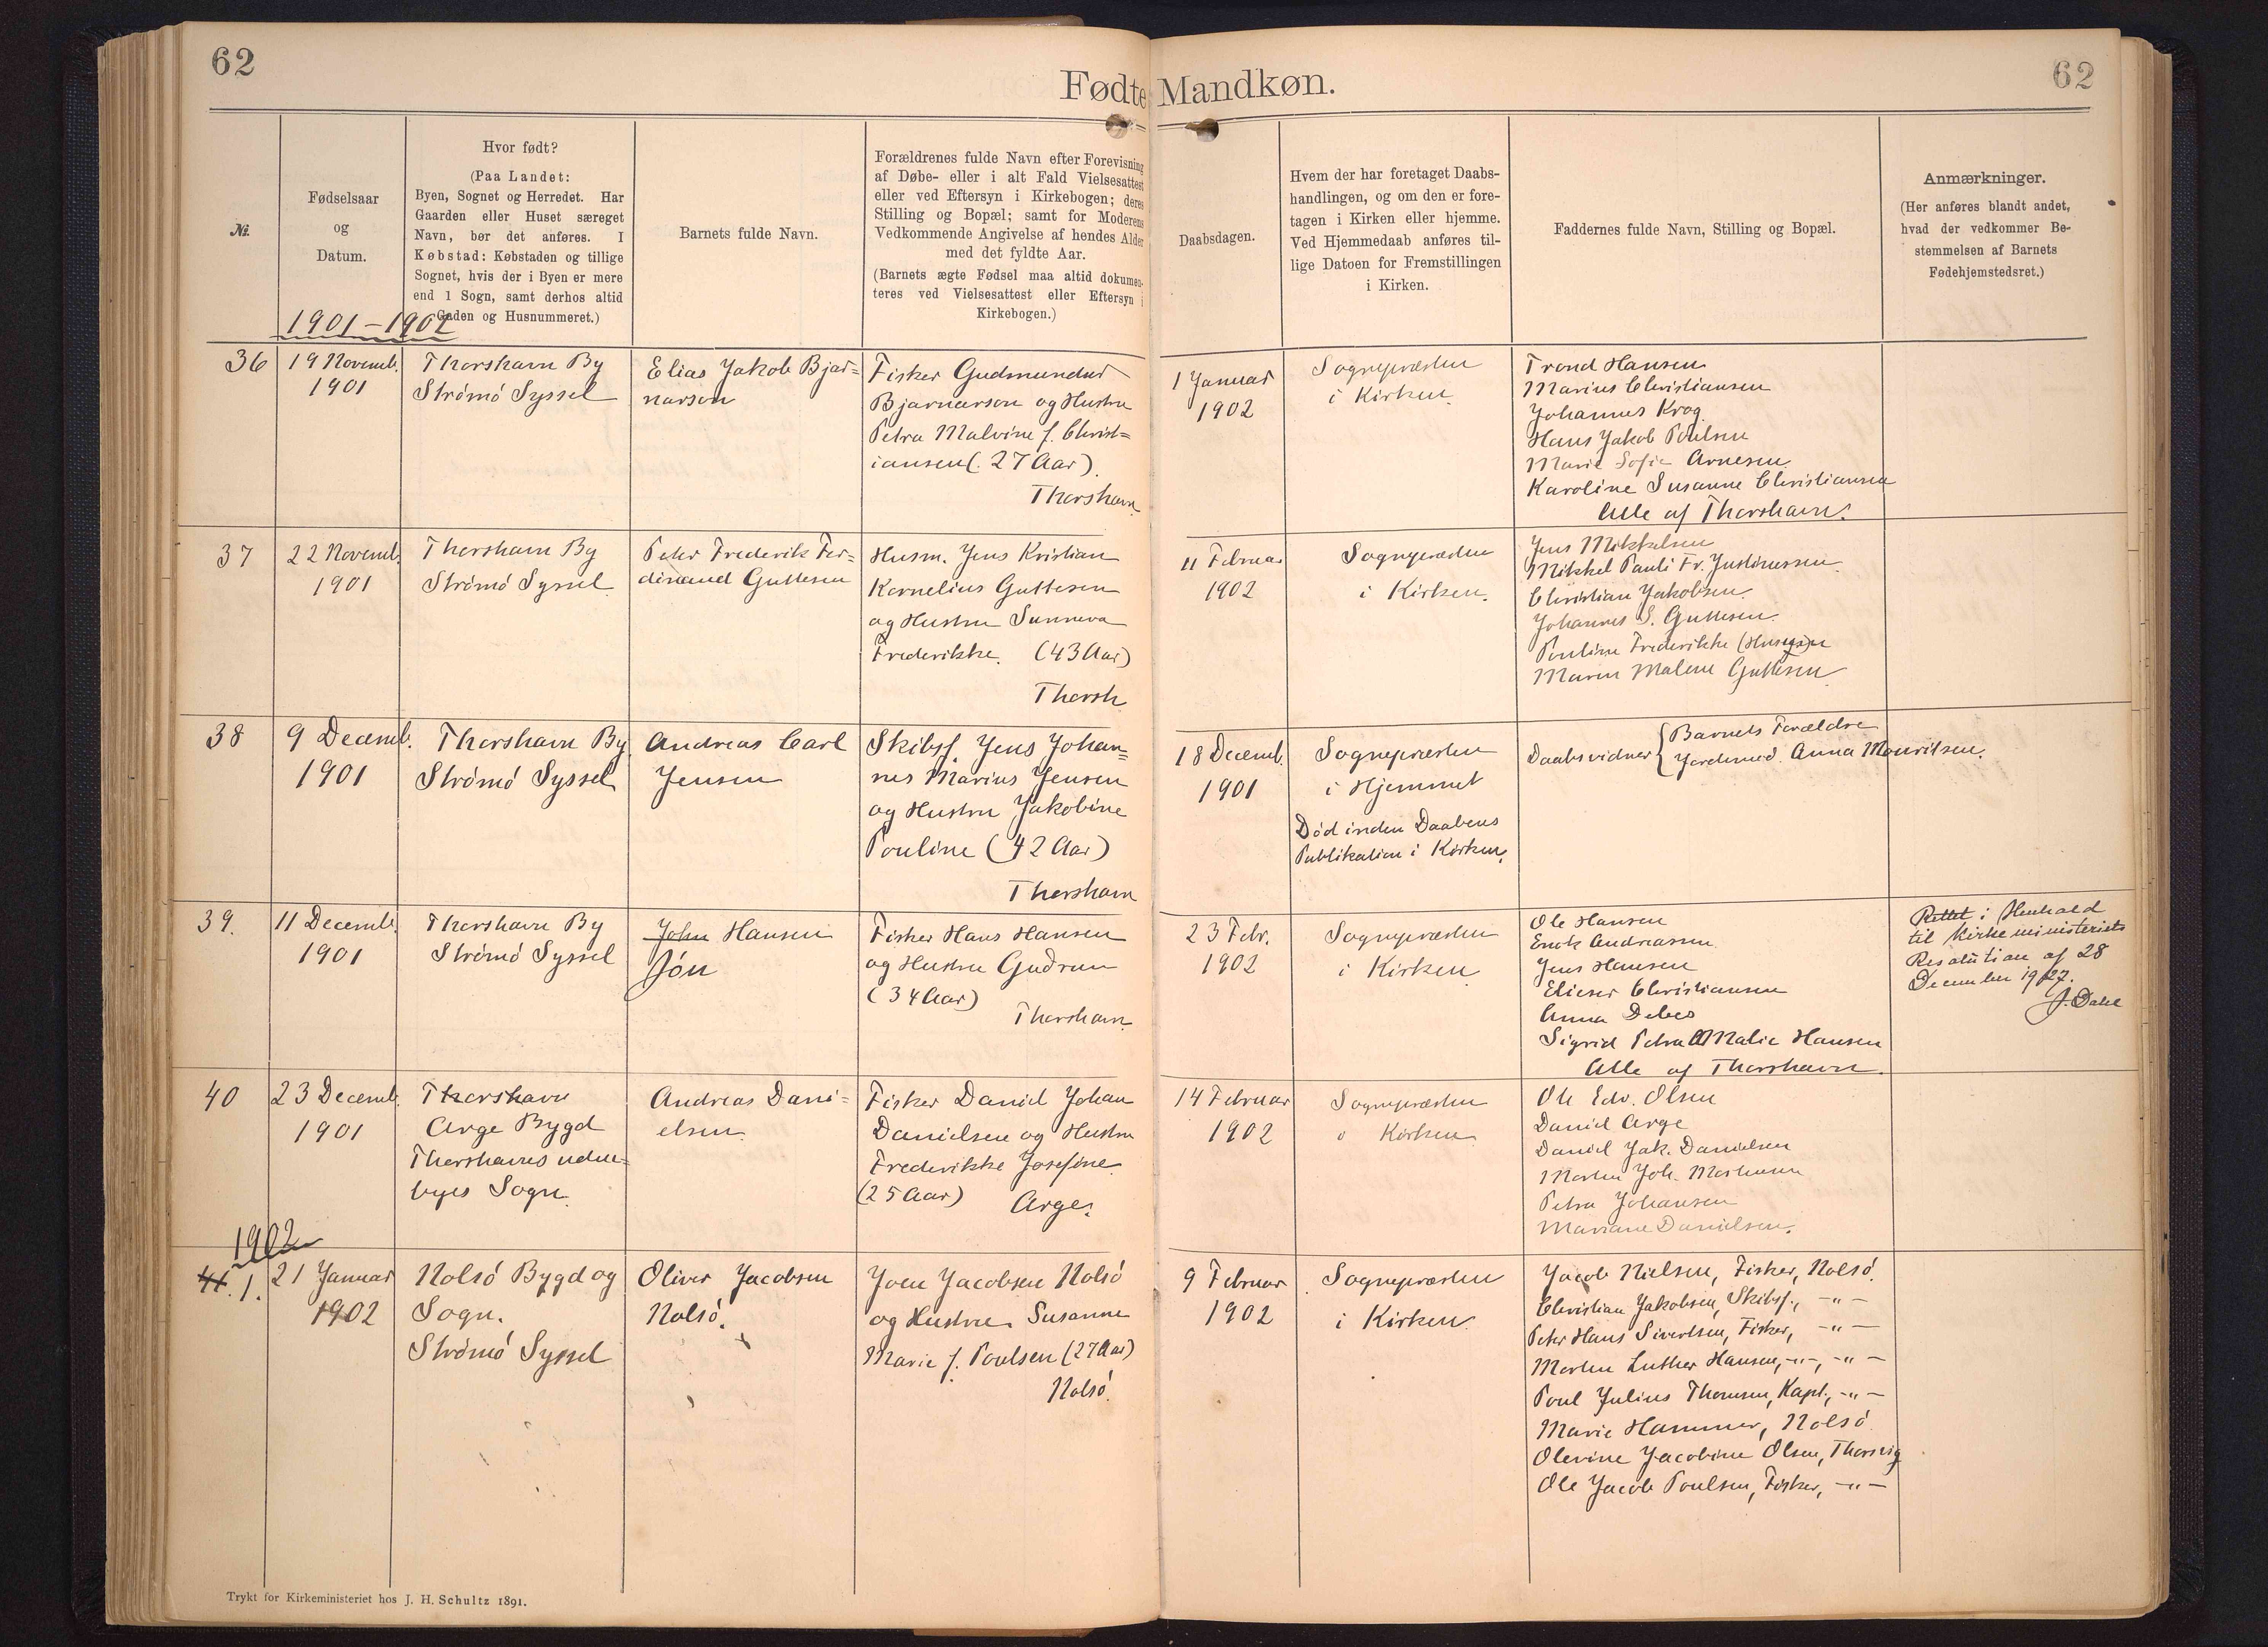 62
Fødte Mandkøn.
62
№.
Fødselsaar
og
Datum.
Hvor født?
(Paa Landet:
Byen, Sognet og Herredet. Har
Gaarden eller Huset særeget
Navn, bør det anføres. I
Købstad: Købstaden og tillige
Sognet, hvis der i Byen er mere
end 1 Sogn, samt derhos altid
Gaden og Husnummeret.)
Barnets fulde Navn.
Forældrenes fulde Navn efter Forevisning
af Døbe- eller i alt Fald Vielsesattest
eller ved Eftersyn i Kirkebogen; deres
Stilling og Bopæl; samt for Moderens
Vedkommende Angivelse af hendes Alder
med det fyldte Aar.
(Barnets ægte Fødsel maa altid dokumen-
teres ved Vielsesattest eller Eftersyn i
Kirkebogen.)
Daabsdagen.
Hvem der har foretaget Daabs-
handlingen, og om den er fore-
tagen i Kirken eller hjemme.
Ved Hjemmedaab anføres til-
lige Datoen for Fremstillingen
i Kirken.
Faddernes fulde Navn, Stilling og Bopæl.
Anmærkninger.
(Her anføres blandt andet,
hvad der vedkommer Be-
stemmelsen af Barnets
Fødehjemstedsret.)
1901-1902
36
19 Novemb.
1901
Thorshavn By
Strømø Syssel
Elias Jakob Bjar=
narson
Fisker Gudmundur
Bjarnarson og Hustru
Petra Malvine f. Christ=
iansen (27 Aar).
Thorshavn
1 Januar
1902
Sognepræsten
i Kirken.
Trond Hansen
Marius Christiansen
Johannes Krog
Hans Jakob Poulsen
Marie Sofie Arnesen
Karoline Susanne Christiansen
Alle af Thorshavn.
37
22 Novemb.
1901
Thorshavn By
Strømø Syssel
Peter Frederik Fer=
dinand Guttesen
Husm. Jens Kristian
Kornelius Guttesen
og Hustru Sunneva
Frederikke. (43 Aar)
Thorsh
11 Februar
1902
Sognepræsten
i Kirken.
Jens Mikkelsen
Mikkel Pauli Fr. Justinussen
Christian Jakobsen.
Johannes S. Guttesen.
Pouline Frederikke
Maren Malene Guttesen
38
9 Decemb.
1901
Thorshavn By
Strømø Syssel
Andreas Carl
Jensen
Skibsf. Jens Johan=
nes Marius Jensen
og Hustru Jakobine
Pouline (42 Aar)
Thorshavn
18 Decemb.
1901
Sognepræsten
i Hjemmet
Død inden Daabens
Publikation i Kirken.
Daabsvidner { Barnets Forældre
Jordemod. Anna Mouritsen.
39.
11 Decemb.
1901
Thorshavn By
Strømø Syssel
John Hansen
Jón
Fisker Hans Hansen
og Hustru Gudrun
(34 Aar)
Thorshavn
23 Febr.
1902
Sognepræsten
i Kirken
Ole Hansen
Enok Andreassen
Jens Hansen
Elieser Christiansen
Anna Debes
Sigrid Petra Amalie Hansen
Alle af Thorshavn.
Rettet i Henhold
til Kirkeministeriets
Resolution af 28
December 1927.
J. Dahl
40
23 Decemb.
1901
Thorshavn
Arge Bygd
Thorshavns uden=
byes Sogn.
Andreas Dani=
elsen.
Fisker Daniel Johan
Danielsen og Hustru
Frederikke Josefine
(25 Aar) Arge.
14 Februar
1902
Sognepræsten
i Kirken
Ole Edv. Olsen
Daniel Arge
Daniel Jak. Danielsen
Morten Joh. Mortensen
Petra Johansen
Mariane Danielsen.
1902
41. 1.
21 Januar
1902
Nolsø Bygd og
Sogn.
Strømø Syssel
Oliver Jacobsen
Nolsø.
Joen Jacobsen Nolsø
og Hustru Susanne
Marie f. Poulsen (27 Aar)
Nolsø.
9 Februar
1902
Sognepræsten
i Kirken.
Jacob Nielsen, Fisker, Nolsø.
Christian Jakobsen, Skibsf., -"-
Peter Hans Sivertsen, Fisker, -"-
Morten Luther Hansen, -"-, -"-
Poul Julius Thomsen, Kapt., -"-
Marie Hammer, Nolsø
Olevine Jacobine Olsen, Thorsvig
Ole Jacob Poulsen, Fisker, -"-
Trykt for Kirkeministeriet hos J. H. Schultz 1891.